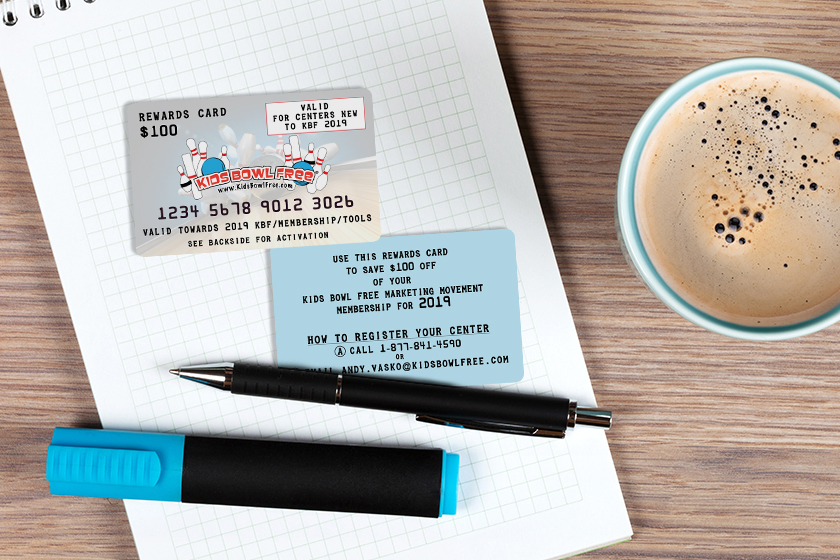 REWARDS CARD
$100
VALID
FOR CENTERS NEW
TO KBF 2019
KIDS BOWL FREE
www.KidsBowlFree.com
1234 5678 9012 3026
VALID TOWARDS 2019 KBF/MEMBERSHIP/TOOLS
SEE BACKSIDE FOR ACTIVATION
USE THIS REWARDS CARD
TO SAVE $100 OFF
OF YOUR
KIDS BOWL FREE MARKETING MOVEMENT
MEMBERSHIP FOR 2019
HOW TO REGISTER YOUR CENTER
A CALL 1-877-841-4590
OR
ANDY.VASKO@KIDSBOWLFREE.COM